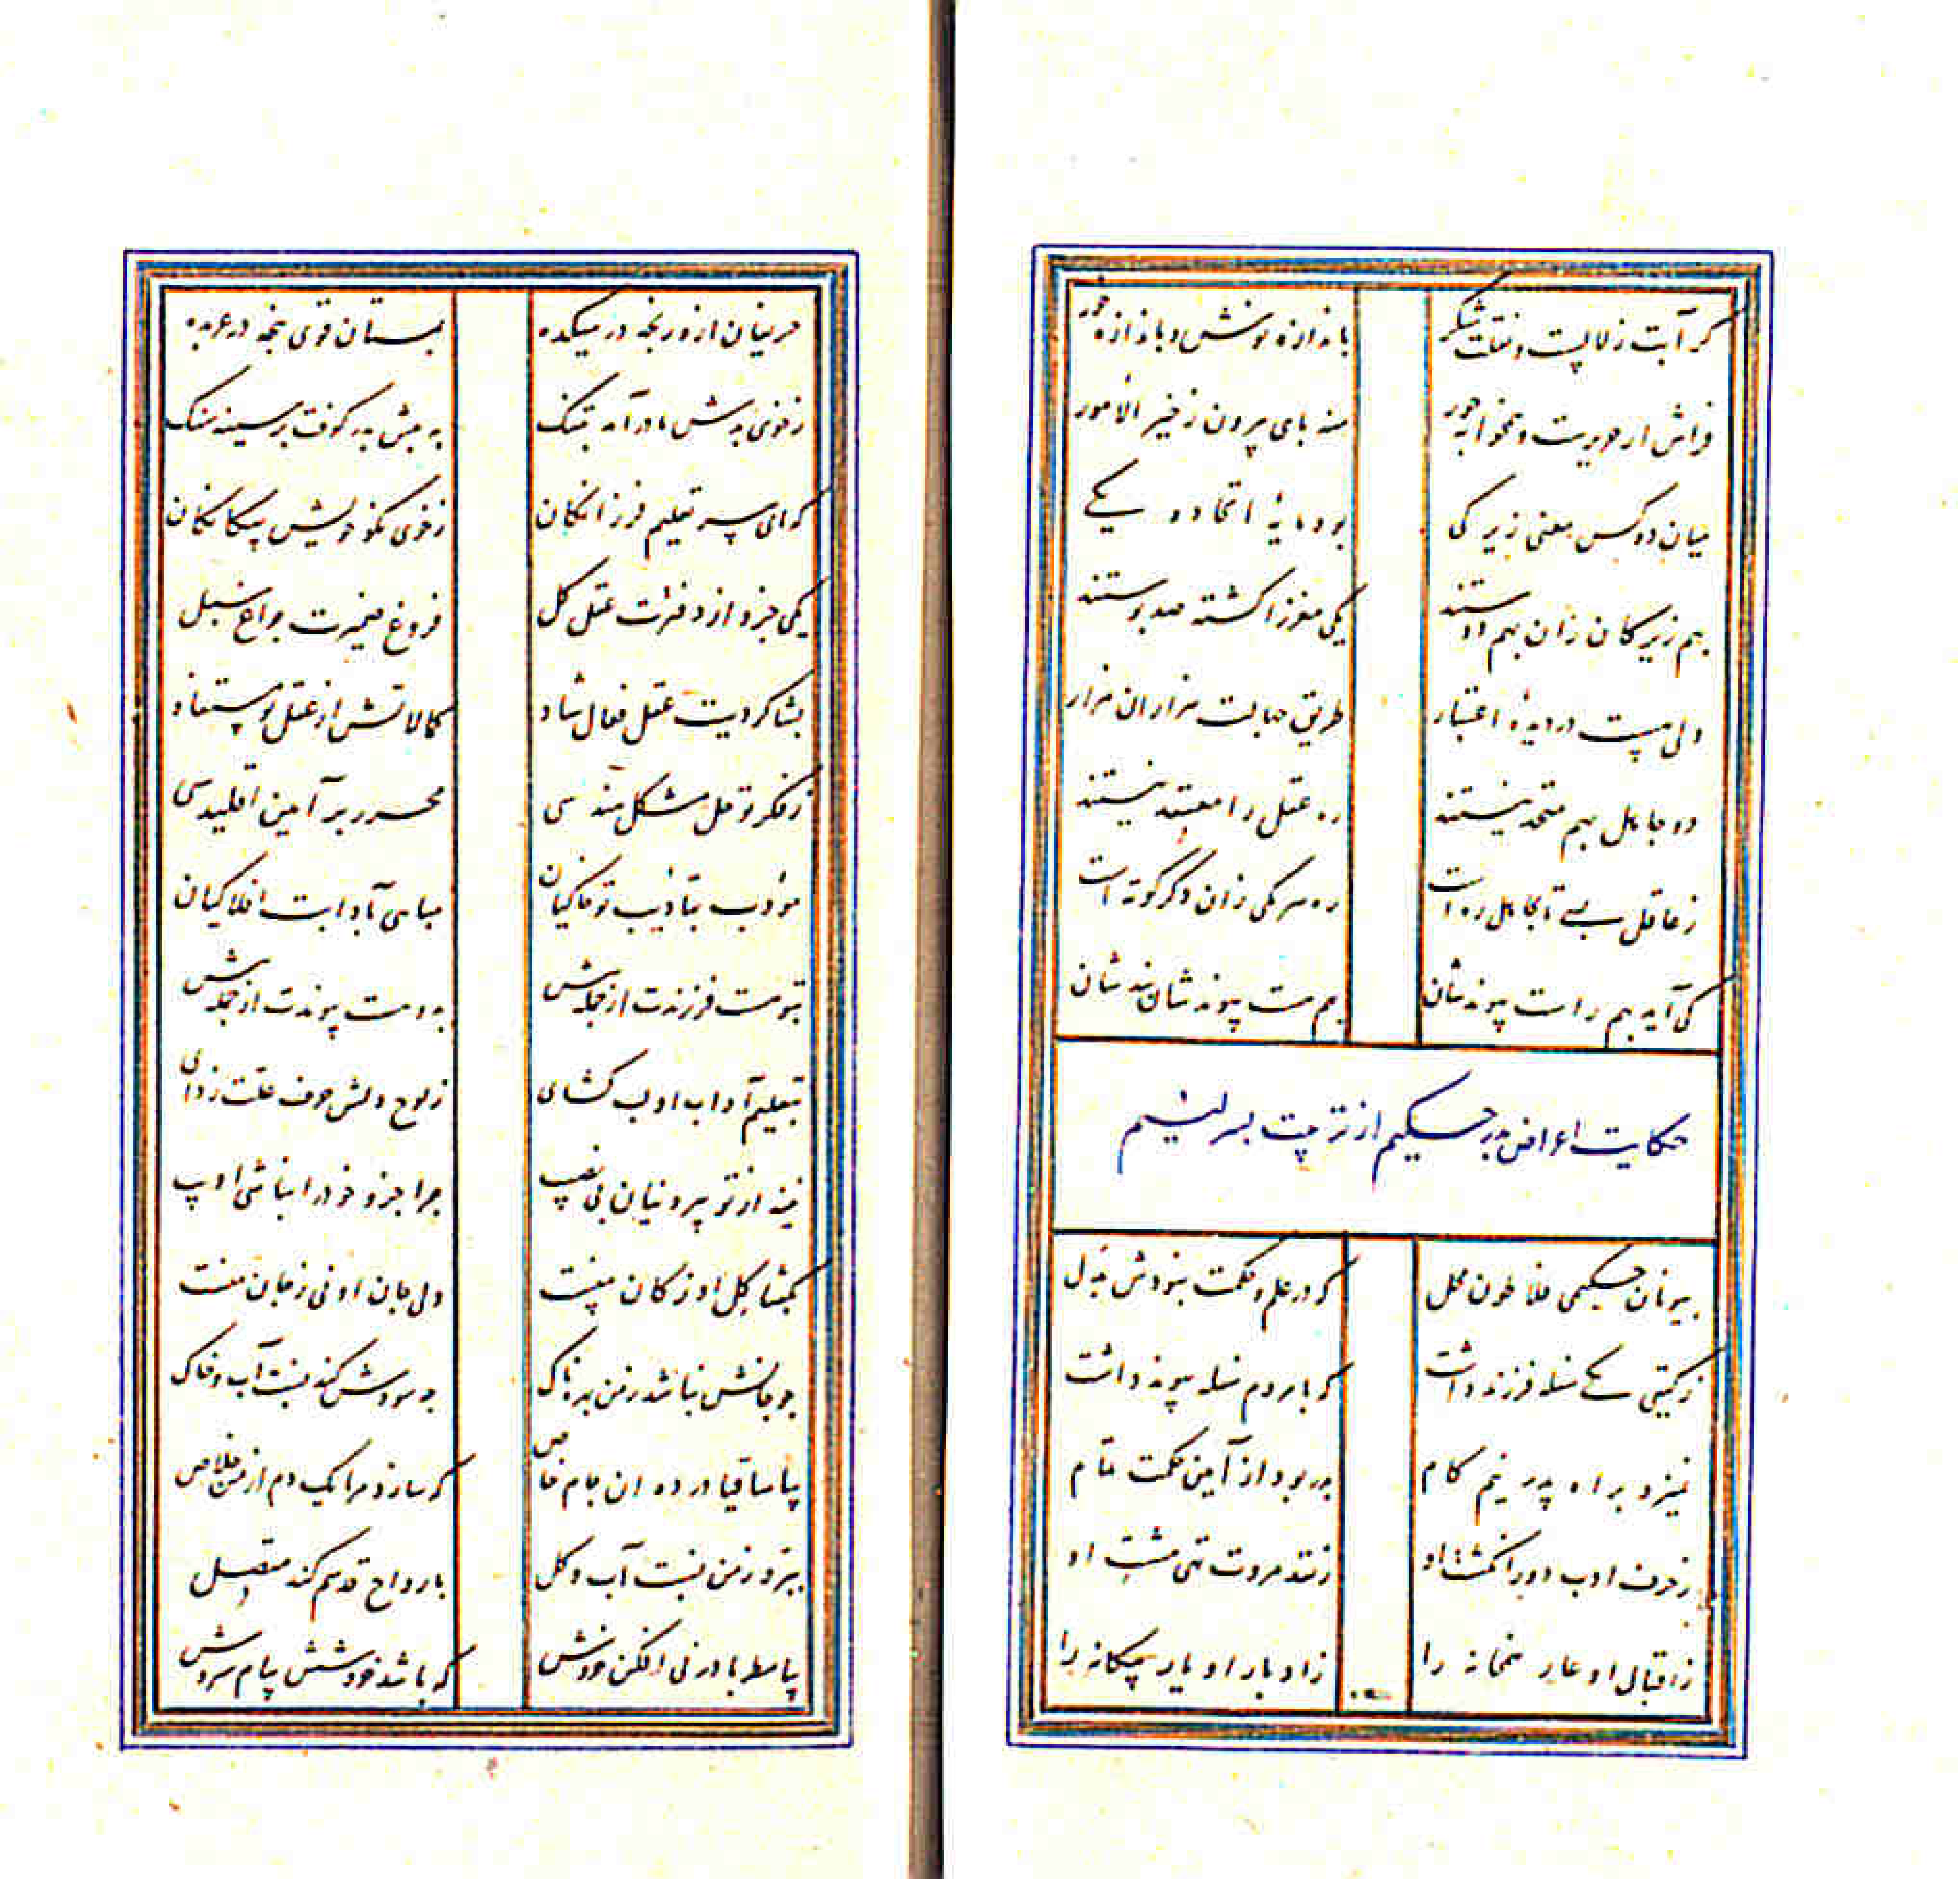 گر آبت زلالیست و نقلت شکر باندازه نوش و باندازه خور
فراش ار حریرست و همخوابه حور منه پای بیرون ز خیر الامور
میان دو کس معنی زیرکی بود مایهٔ اتحاد و یکی
بهم زیرکان زان بهم دوستند یکی مغزرا کشته صد پوستند
ولی هست در دیدهٔ اعتبار طریق جهالت هزاران هزار
دو جاهل بهم متحد نیستند ره عقل را معتمد نیستند
ز عاقل بسی تا بجاهل ره است ره هر یکی زان دگر کوته است
کی آید بهم راست پیوندشان بهم هست پیوندشان بندشان
حکایت اعراض پدر حکیم از تربیت پسر لئیم
بیونان حکیمی فلاطون محل که در علم و حکمت نبودش بدل
ز گیتی یکی سفله فرزند داشت که با مردم سفله پیوند داشت
نمیزد براه پدر نیم کام بری بود از آیین حکمت تمام
ز حرف ادب دور انکشت او ز نقد مروت تهی مشت او
ز اقبال او عار همخانه را ز ادبار او بار بیکانه را
حریفان از و رنجه در میکده بمستان قوی پنجه در عربده
ز خوی بدش مادر آمد بتنک به پیش پدر کوفت بر سینه سنک
که ای سر تعلیم فرزانکان ز خوی نکو خویش بیکانکان
یکی جزو از دفترت عقل کل فروغ ضمیرت چراغ سبل
بشاکردیت عقل فعال شاد کمالاتش از عقل تو مستفاد
ز فکر تو حل مشکل هندسی محرر بر آیین اقلیدسی
مؤدب بتأدیب تو خاکیان مباهی بآدابت افلاکیان
بتوست فرزندت از جمله بیش بدوهست پیوندت از جمله بیش
بتعلیم آداب او لب کشای ز لوح دلش حرف علت زدای
نیند از تو بیرونیان بی نصیب چرا جزو خود را نباشی ادیب
بگفتا کل او ز کان منست ولی جان او نی ز جان منست
چو جانش نباشد ز من بهره ناک چه سودش کند نسبت آب و خاک
بیا ساقیا در ده آن جام خاص که سازد مرا یک دم از من خلاص
ببرد ز من نسبت آب و کل بارواح قدسم کند متصل
بیا مطربا در نی افکن خروش که باشد خروشش پیام سروش